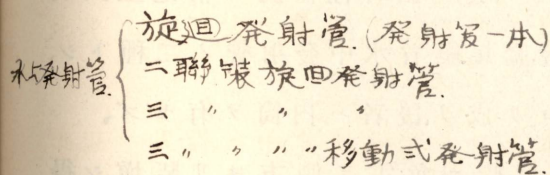 水上発射管.
旋迴発射管.(発射管一本)
二聯装旋回発射管.
三 〃 〃 〃
三〃 〃 〃〃移動式発射管.